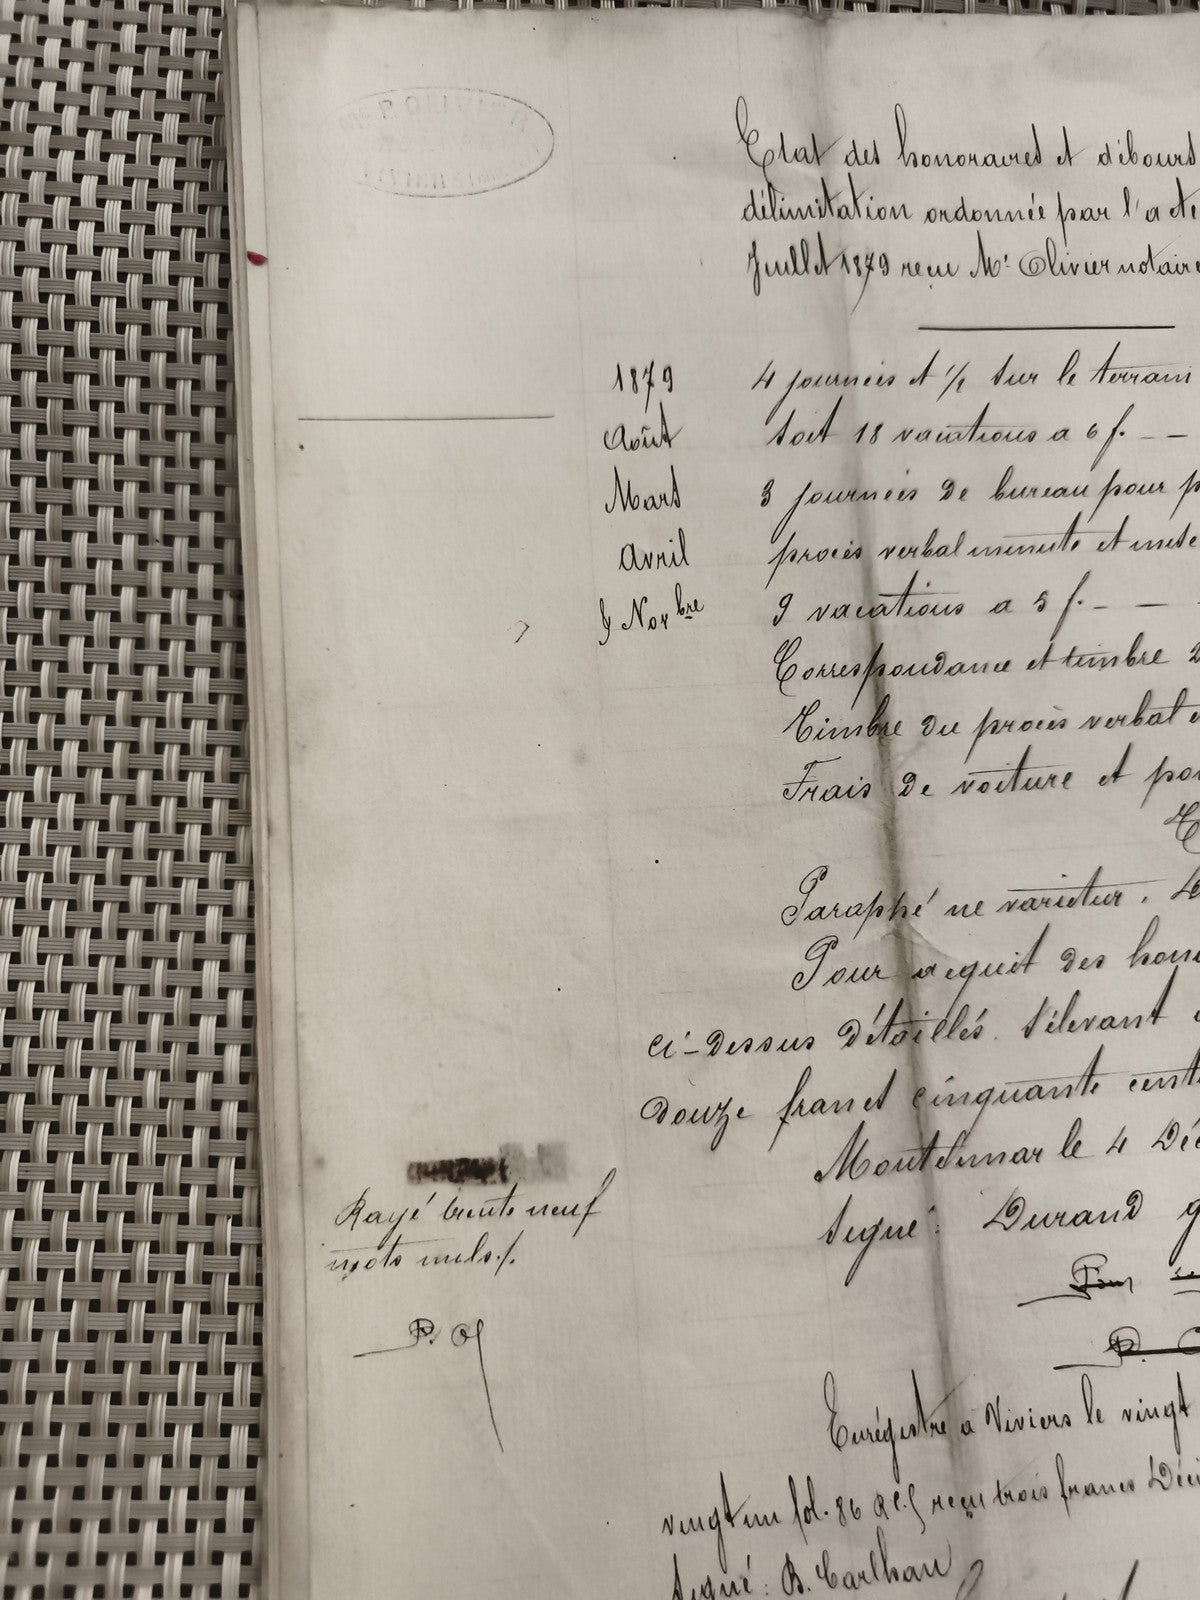 Etat des honoraires et débours
délimitation ordonnée par l'acte
Juillet 1879 reçu Me Olivier notaire
1879 4 journées et 1/2 sur le terrain
Août soit 18 vacations a 6 f. - -
Mars 3 journées de bureau pour p
Avril procès verbal minute et mise
9 Novbre 9 vacations a 5 f. - -
Correspondance et timbre 2
Timbre du procès verbal e
Frais de voiture et po
Paraphé ne varietur.
Pour acquit des hono
ci-dessus détaillés. s'élevant
douze francs cinquante cent
Montélimar le 4 Déc
signé: Durand g
Rayé trente neuf
mots nuls./.
P. O
Enrégistré a Viviers le vingt
vingt un fol. 86 reçu trois francs Déci
signé: B. Carlhan